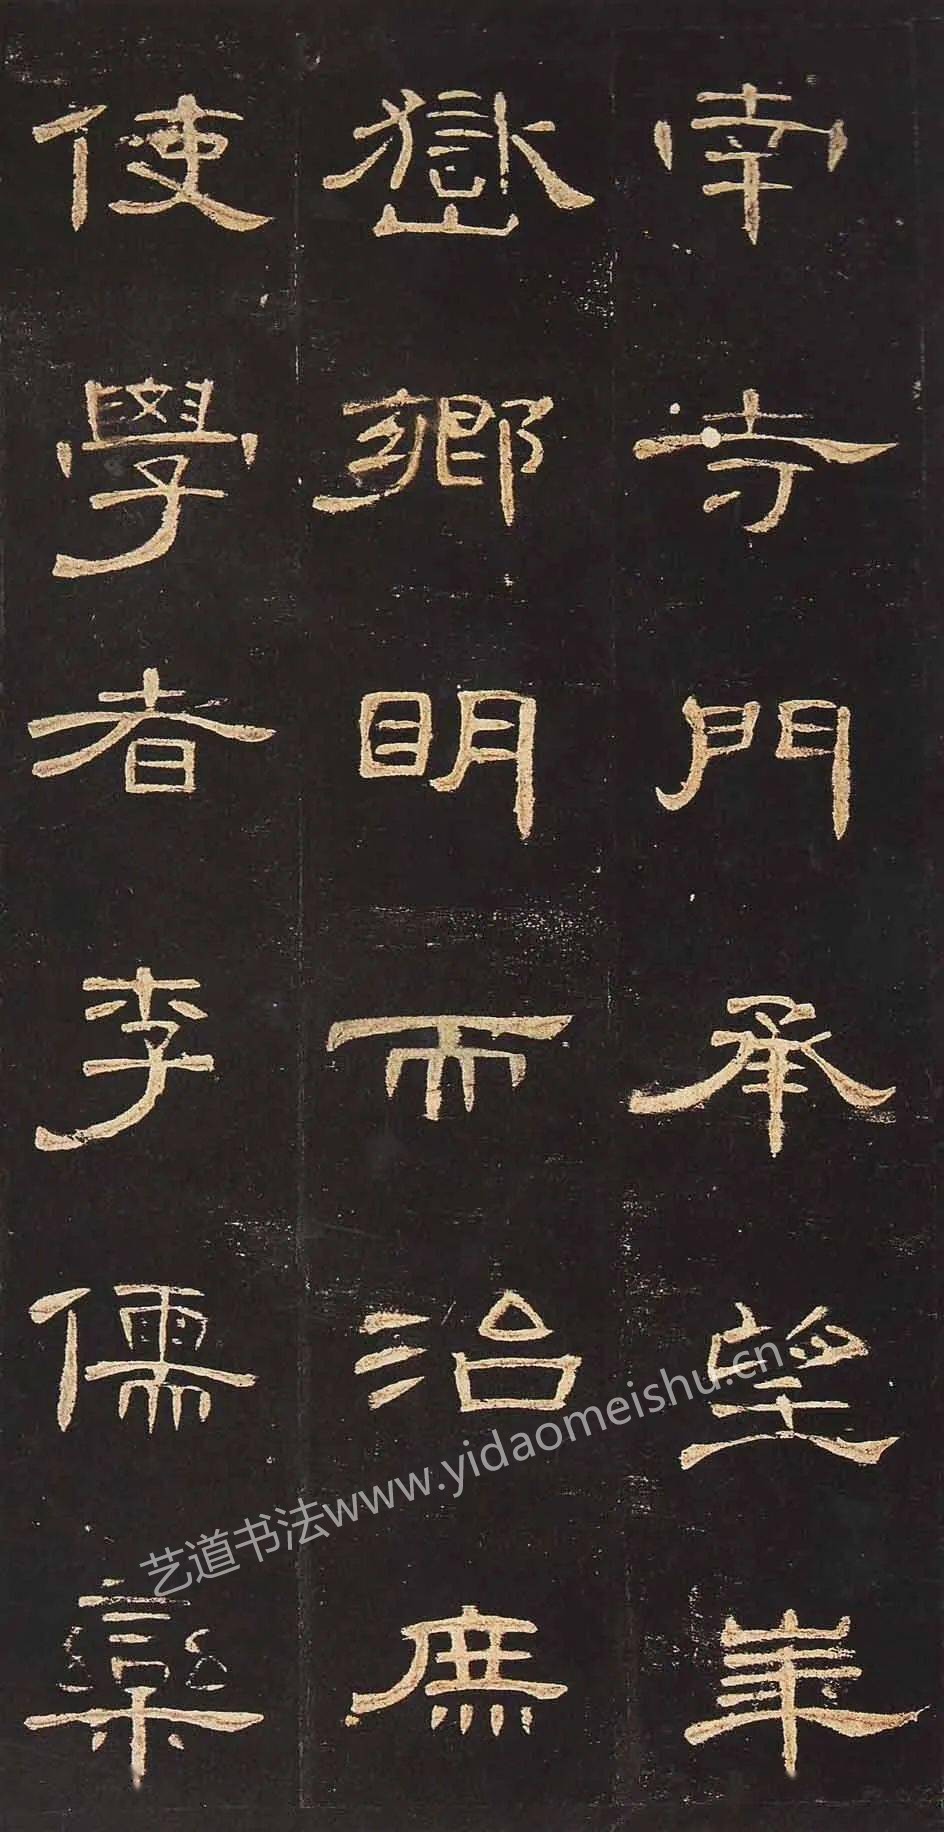 南寺門承望華
嶽鄉明而治庶
使學者李儒欒
艺道书法www.yidaomeishu.cn